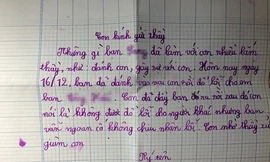 Con kính gửi thầy
Những gì bạn đã làm với con nhiều lắm
thầy, như đánh con, gây sự với con. Hôm nay ngày
16/12, bạn đã đánh con đổ lỗi cho em
bạn Con đã đẩy bạn ra rồi sau đó con
nói là không được đổ lỗi cho người khác nhưng bạn
vẫn ngoan cố không chịu nhận lỗi. Con nhờ thầy xử
giùm con.
Ký tên